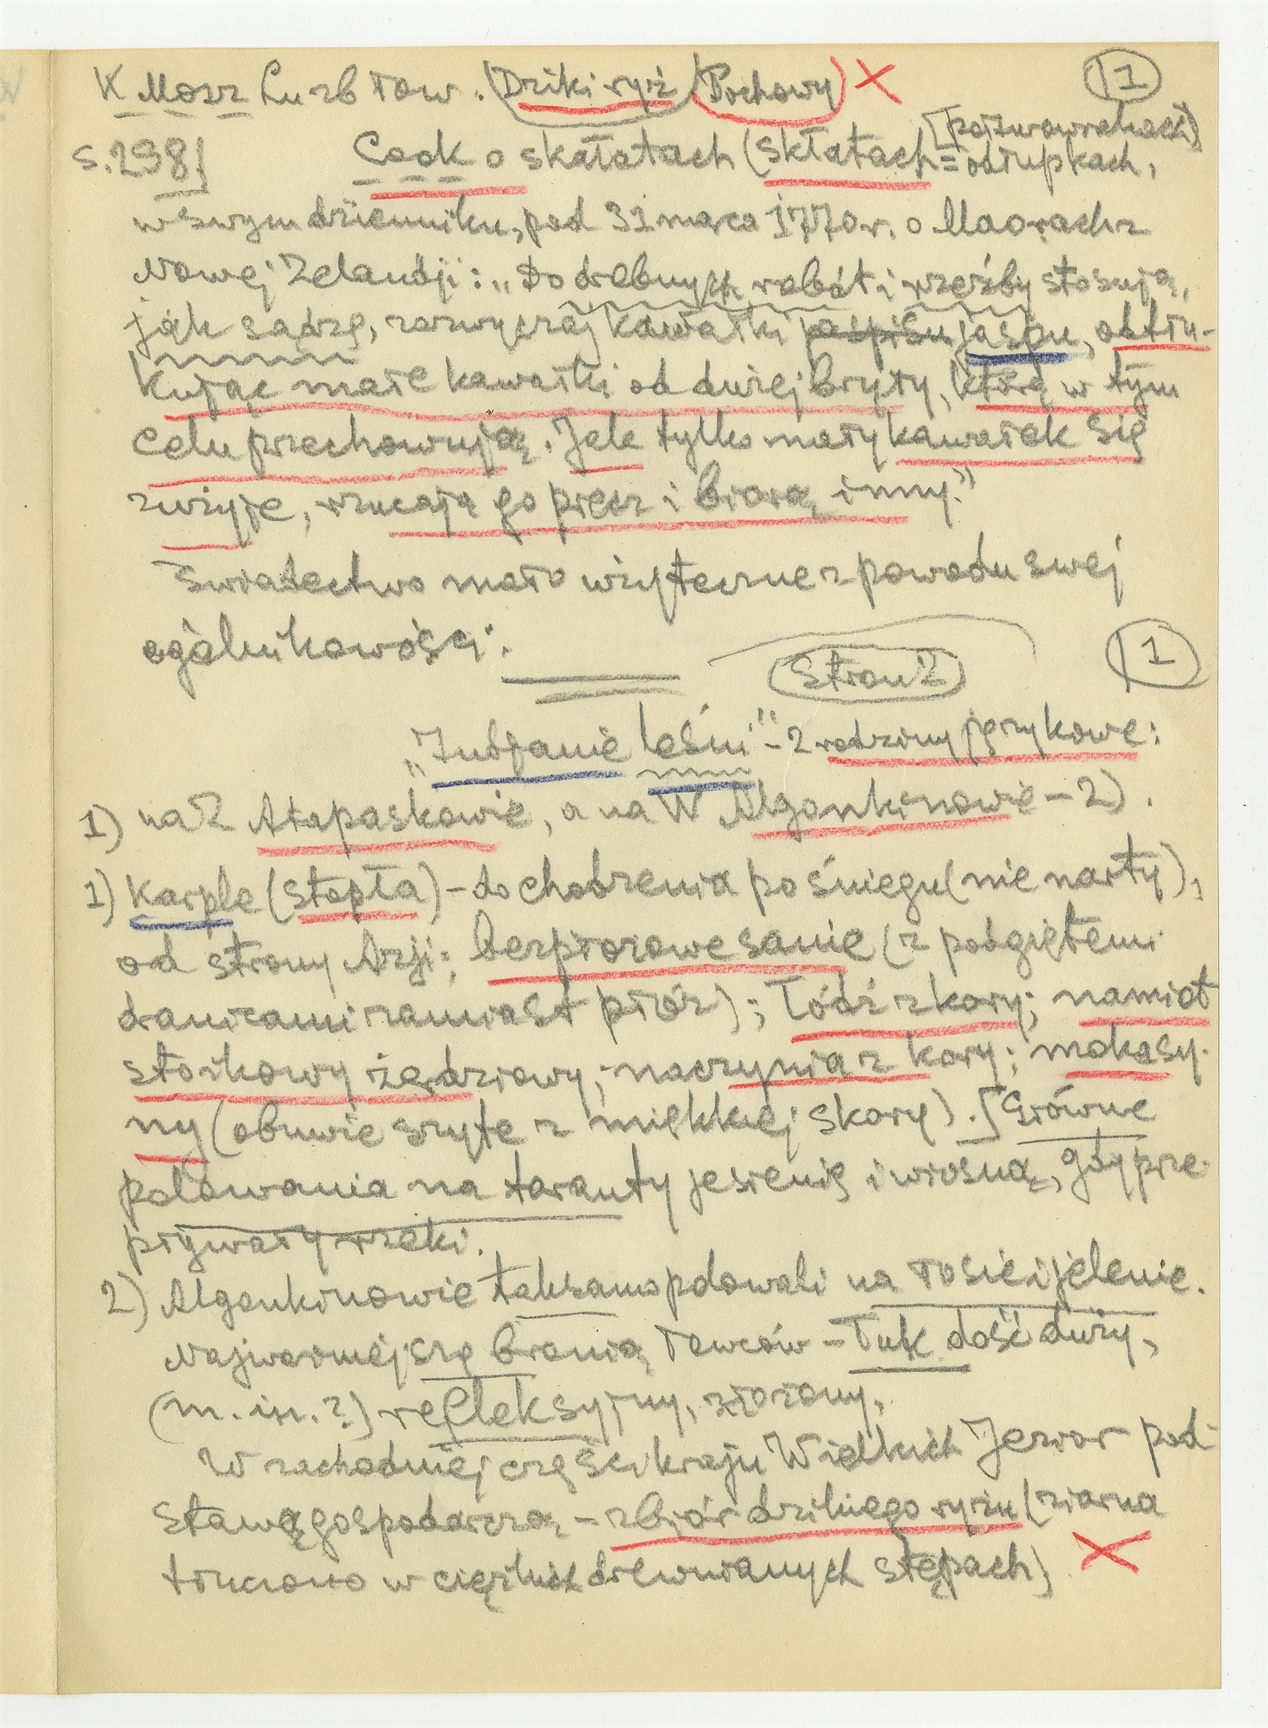 K Mosz Lu zb Tow. (Dziki ryż) (Pochowy) X 1
[pazurowrahach]
s. 298] Cook o skałatach (skłatach = odłupkach,
w swym dzienniku, pod 31 marca 1770 r. o Maorach z
Nowej Zelandji: "Do drobnych robót i rzeźby stosują,
jak sądzę, zazwyczaj kawałki jaspisu jaspu, obtłu-
kując małe kawałki od dużej bryły, którą w tym
celu przechowują. Jak tylko mały kawałek się
zużyje, rzucają go precz i biorą inny."
Świadectwo mało użyteczne z powodu swej
ogólnikowości.
Stron 2 1
"Indjanie leśni" – 2 rodziny językowe:
1) na Z Atapaskowie, a na W Algonkinowie – 2).
1) Karple (stopła) – do chodzenia po śniegu (nie narty),
od strony Azji; bezpłozowe sanie (z podgiętemi
dranicami zamiast płóz); łódź z kory; namiot
stożkowy żerdziowy; naczynia z kory; mokasy-
ny (obuwie szyte z miękkiej skóry). [Główne
polowania na taranty jesienią i wiosną, gdy prze-
pływały rzeki.
2) Algonkinowie taksamo polowali na łosie i jelenie.
Najważniejszą bronią łowców – łuk dość duży,
(m. in.?) refleksyjny, złożony.
W zachodniej części kraju Wielkich Jezior pod-
stawą gospodarczą – zbiór dzikiego ryżu (ziarna
tłuczono w ciężkich drewnianych stępach) X